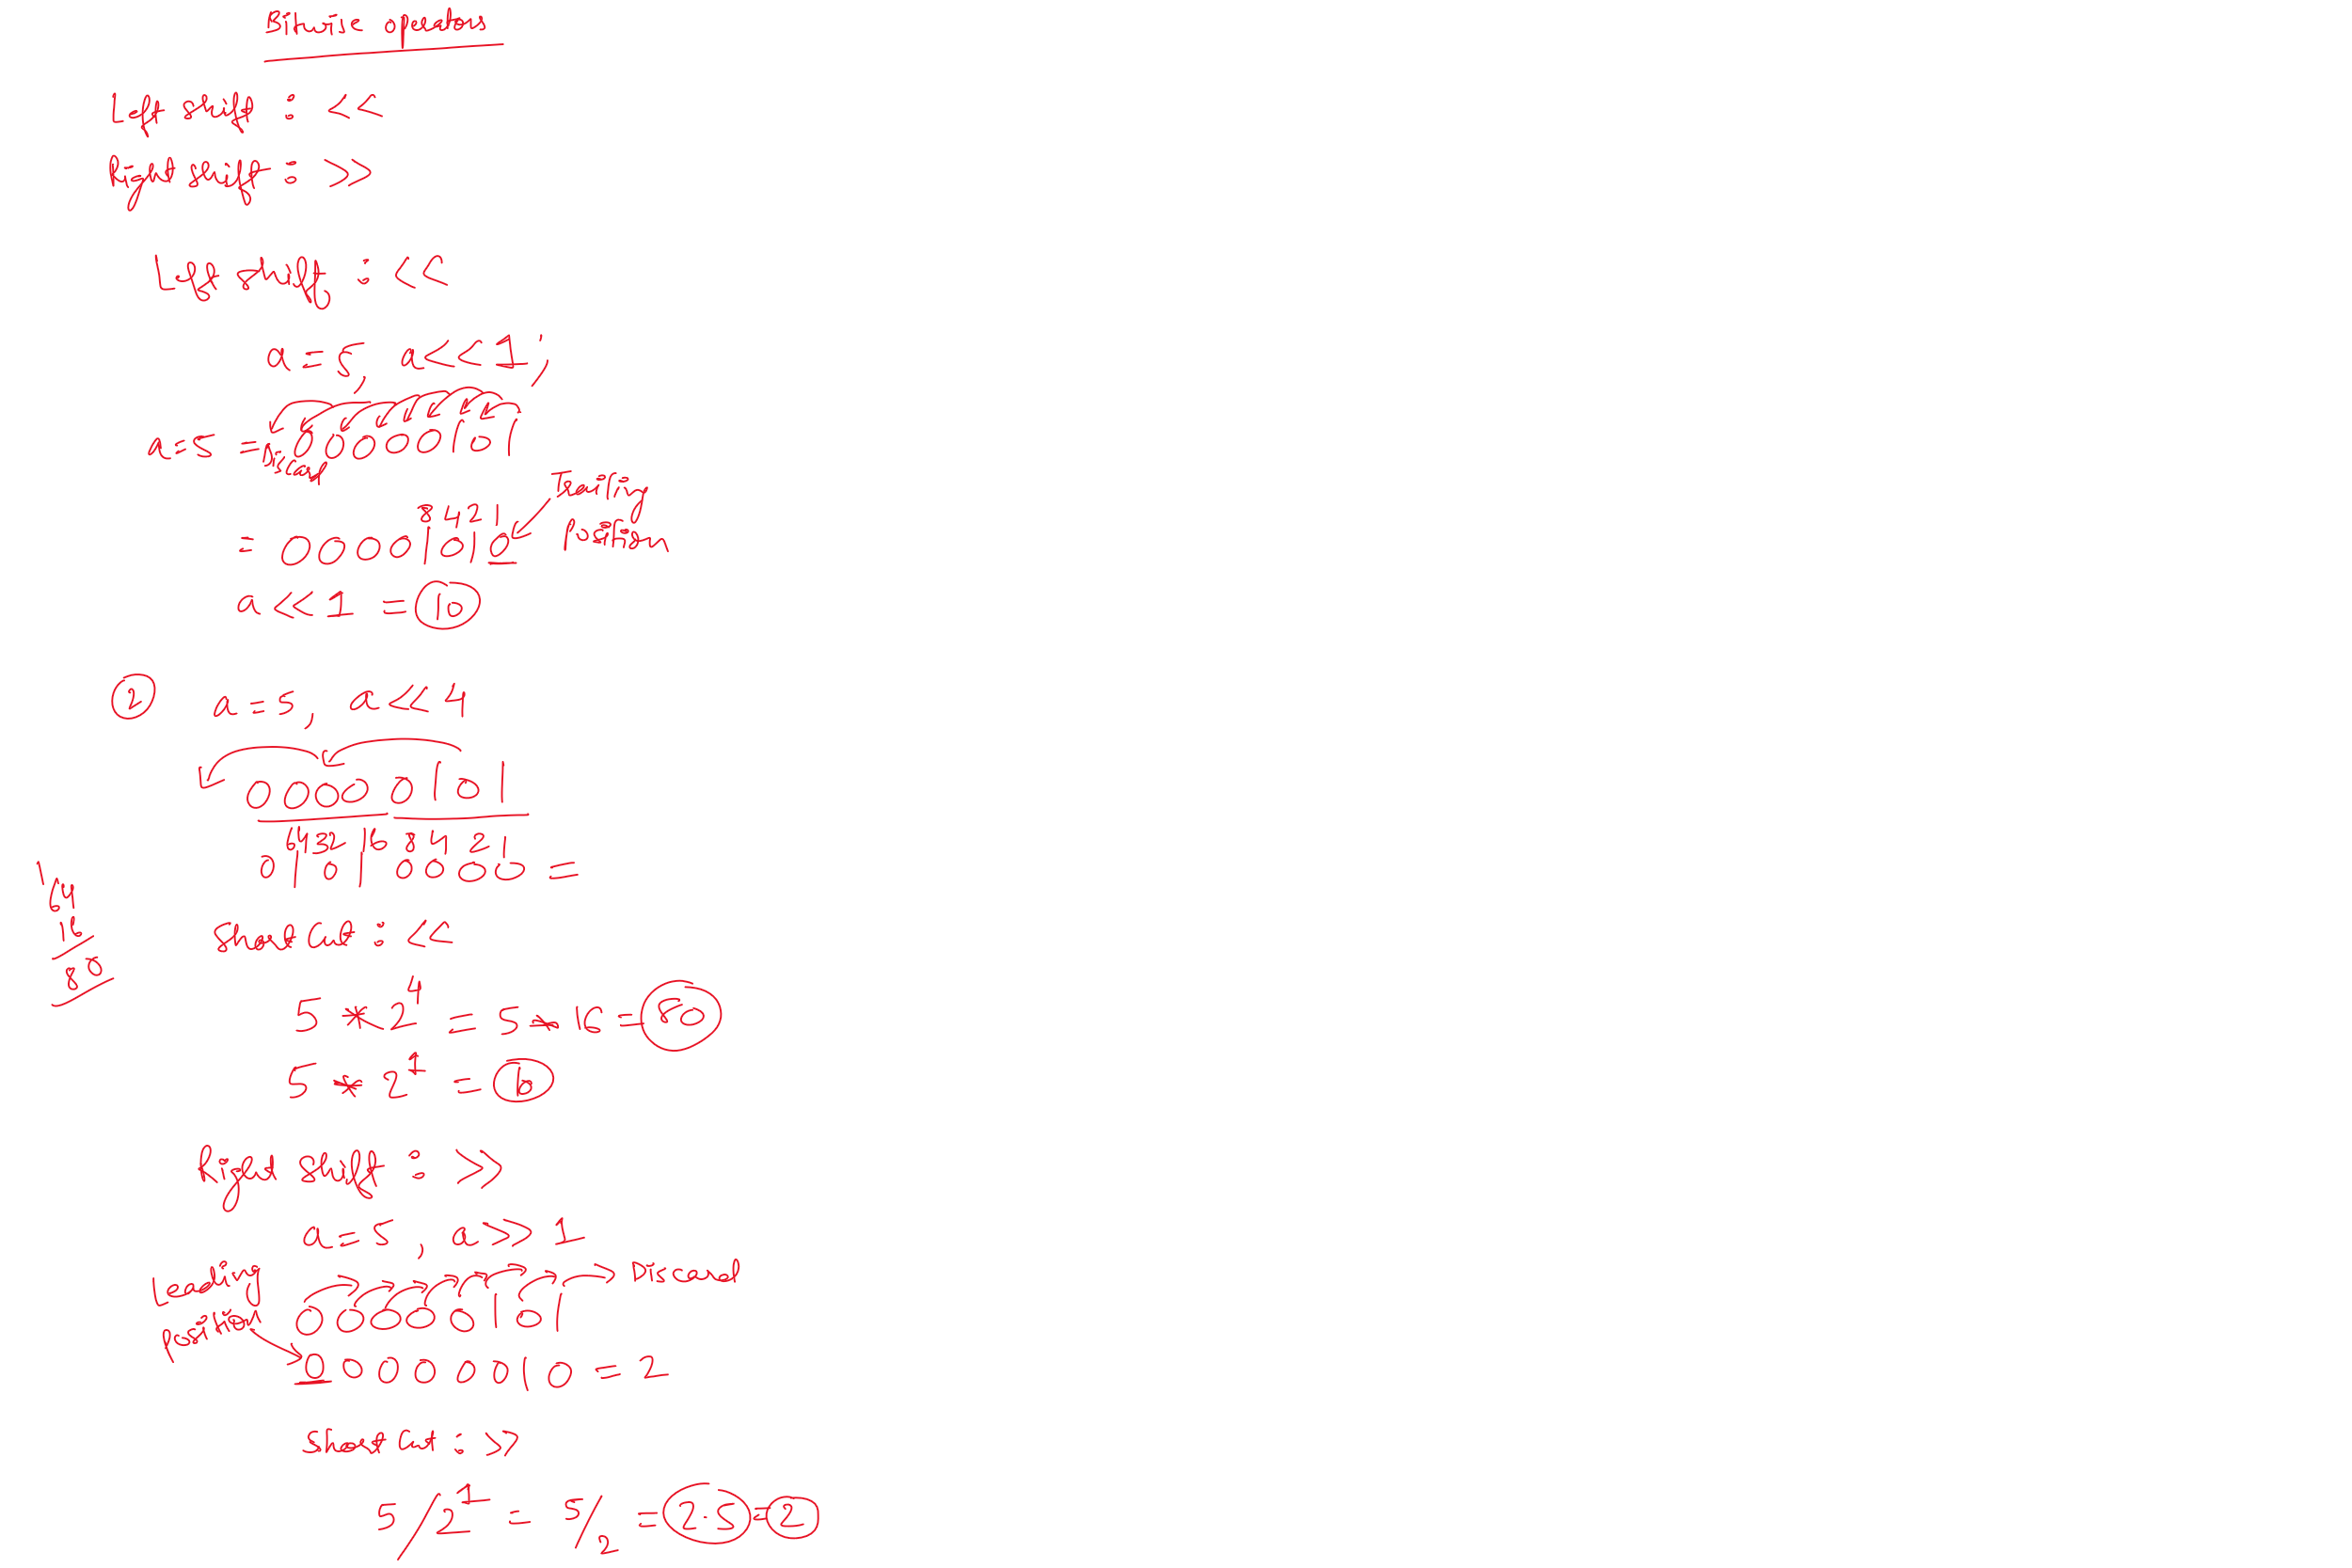 Bitwise operators
Left shift : <<
Right shift : >>
Left shift : <<
a = 5, a << 1;
a = 5 = 00000101
Discard
Trailing
position
8 4 2 1
= 00001010
a << 1 = 10
2 a = 5, a << 4
0000 0101
64 32 16 8 4 2 1
0 1 0 1 0 0 0 0 =
1
64
16
80
Short Cut : <<
5 * 2^4 = 5 * 16 = 80
5 * 2^1 = 10
Right shift : >>
a = 5, a >> 1
Leading
position
Discard
00000101
00000010 = 2
Short Cut : >>
5/2^1 = 5/2 = 2.5 = 2